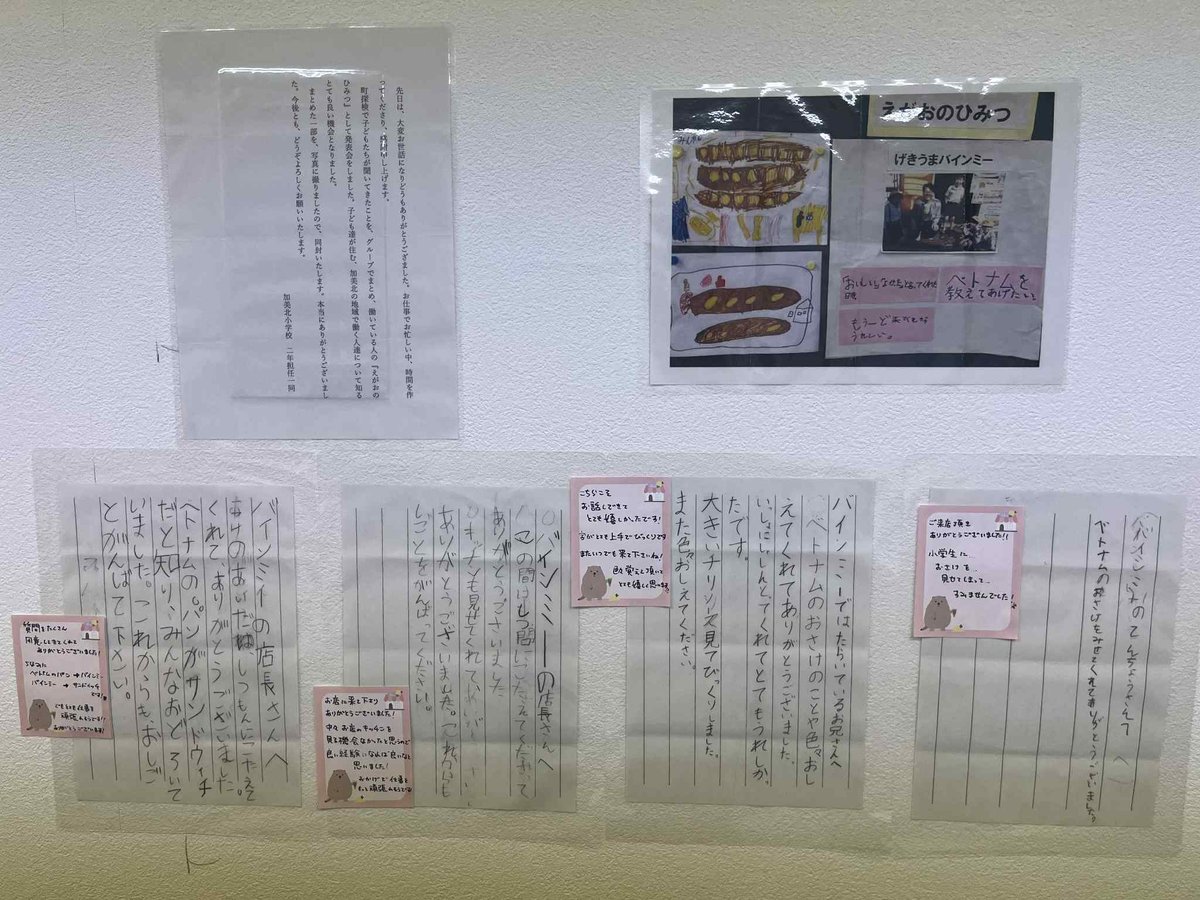 先日は、大変お世話になりどうもありがとうございました。お仕事でお忙しい中、時間を作
ってくださり、感謝申し上げます。
町探検で子どもたちが聞いてきたことを、グループでまとめ、働いている人の『えがおの
ひみつ』として発表会をしました。子ども達が住む、加美北の地域で働く人達について知る
とても良い機会となりました。
まとめた一部を、写真に撮りましたので、同封いたします。本当にありがとうございまし
た。今後とも、どうぞよろしくお願いいたします。
加美北小学校 二年担任一同
えがおのひみつ
げきうまバインミー
ベトナムを
教えてあげたい
バインミーの店長さんへ
このあいだは、しつもんにこたえて
くれて、ありがとうございました。
ベトナムのパンがサンドウィチ
だと知り、みんなおどろいて
いました。これからも、おしご
とがんばって下さい。
質問をたくさん
用意してきてくれて
ありがとうございました!
ちなみに
ベトナムのパン→バインミー
バインミー→サンドイッチ
です!
これからも仕事を
頑張れそうです!!
ありがとうございます!
バインミーの店長さんへ
この間はしつ問にこたえてくださいて
ありがとうございました。
キッチンも見せてくれて
ありがとうございました。これからも
しごとをがんばってください。
お店に来て下さり
ありがとうございました!
中々お店のキッチンを
見る機会なかったと思うので
良い経験になれば良いなと
思いました!
おかげで仕事を
もっと頑張れそうです
バインミーではたらいているお兄さんへ
ベトナムのおさけのことや色々おし
えてくれてありがとうございました。
いっしょにしゃしんとてくれてとてもうれしか
たです。
大きいナリソース見てびっくりしました。
また色々おしえてください。
こちらこそ
お話しできて
とても嬉しかったです!
字がとても上手でびっくりです
またいつでも来て下さいね!
色々覚えて頂いて
とても嬉しく思います
バインミーのてんちょうさんへ
ベトナムのおさけをみせてくれてありがとうございました。
ご来店頂き
ありがとうございました!!
小学生に…
おさけを…
見せてしまって…
すみませんでした!